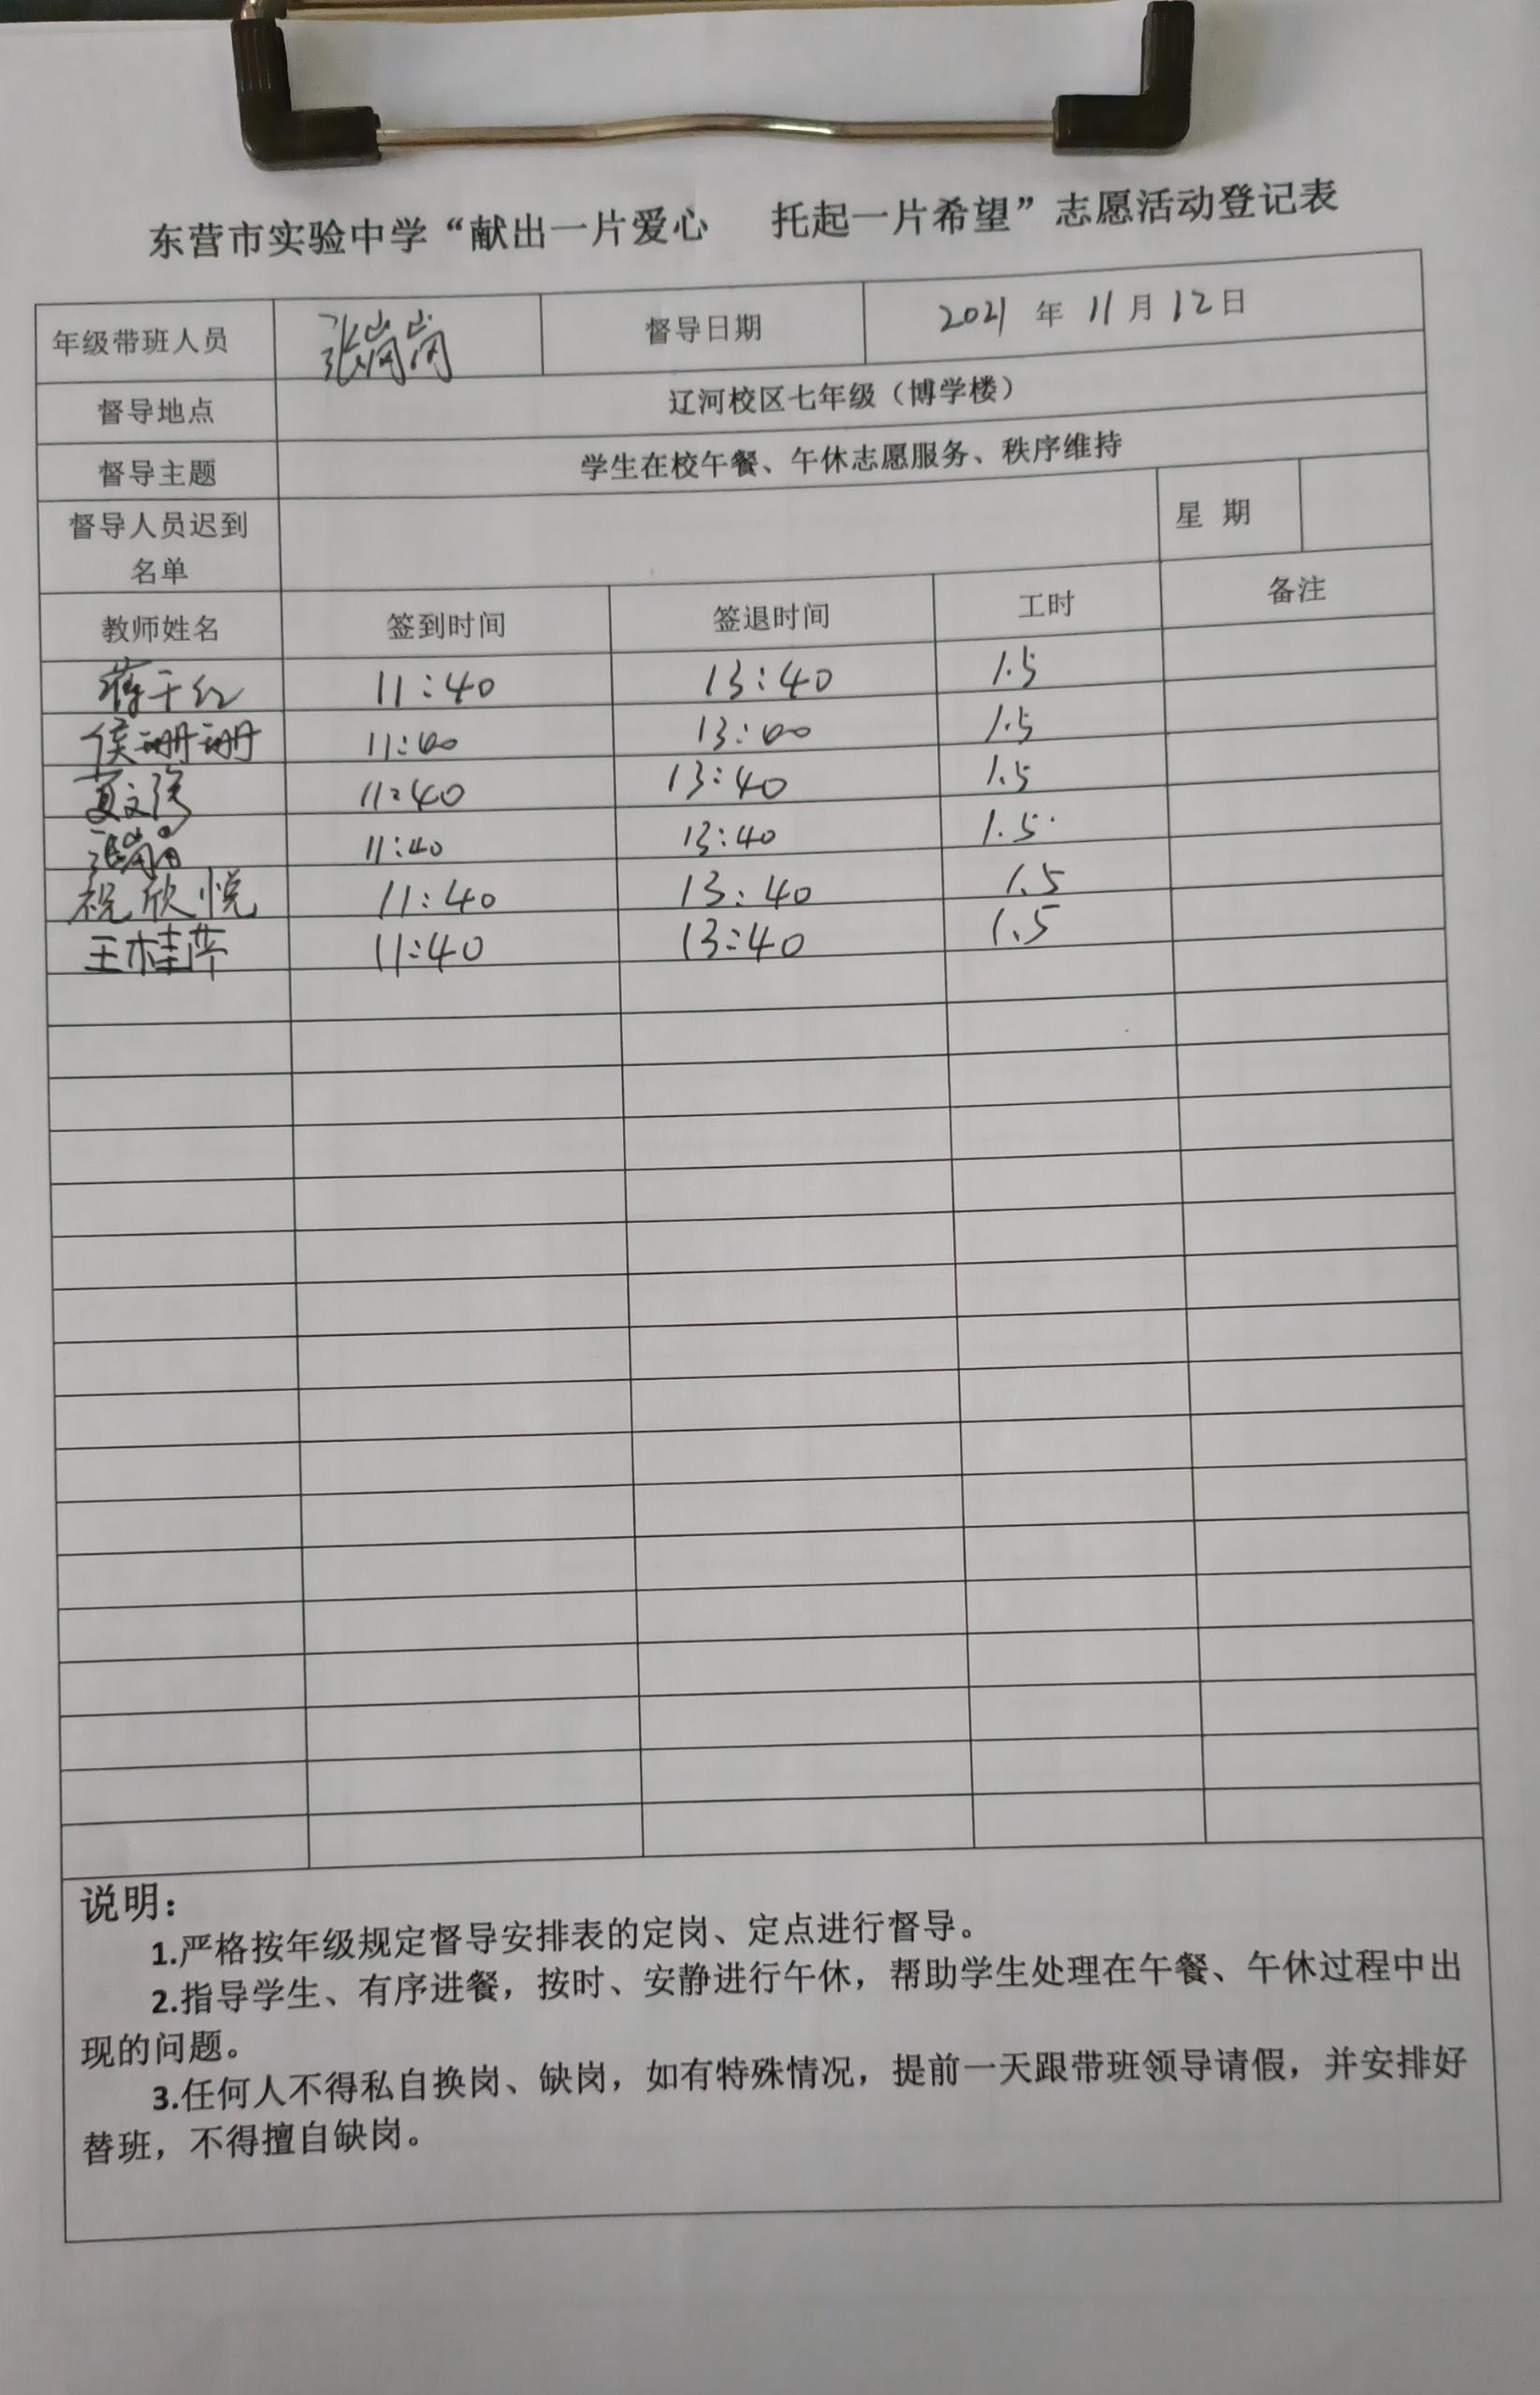 东营市实验中学“献出一片爱心 托起一片希望”志愿活动登记表
年级带班人员 张岗岗 督导日期 2021 年 11 月 12 日
督导地点 辽河校区七年级（博学楼）
督导主题 学生在校午餐、午休志愿服务、秩序维持
督导人员迟到名单 星 期
教师姓名 签到时间 签退时间 工时 备注
蒋于红 11:40 13:40 1.5
侯珊珊 11:40 13:40 1.5
夏文 11:40 13:40 1.5
张岗岗 11:40 13:40 1.5
祝欣悦 11:40 13:40 1.5
王桂萍 11:40 13:40 1.5
说明：
1.严格按年级规定督导安排表的定岗、定点进行督导。
2.指导学生、有序进餐，按时、安静进行午休，帮助学生处理在午餐、午休过程中出
现的问题。
3.任何人不得私自换岗、缺岗，如有特殊情况，提前一天跟带班领导请假，并安排好
替班，不得擅自缺岗。